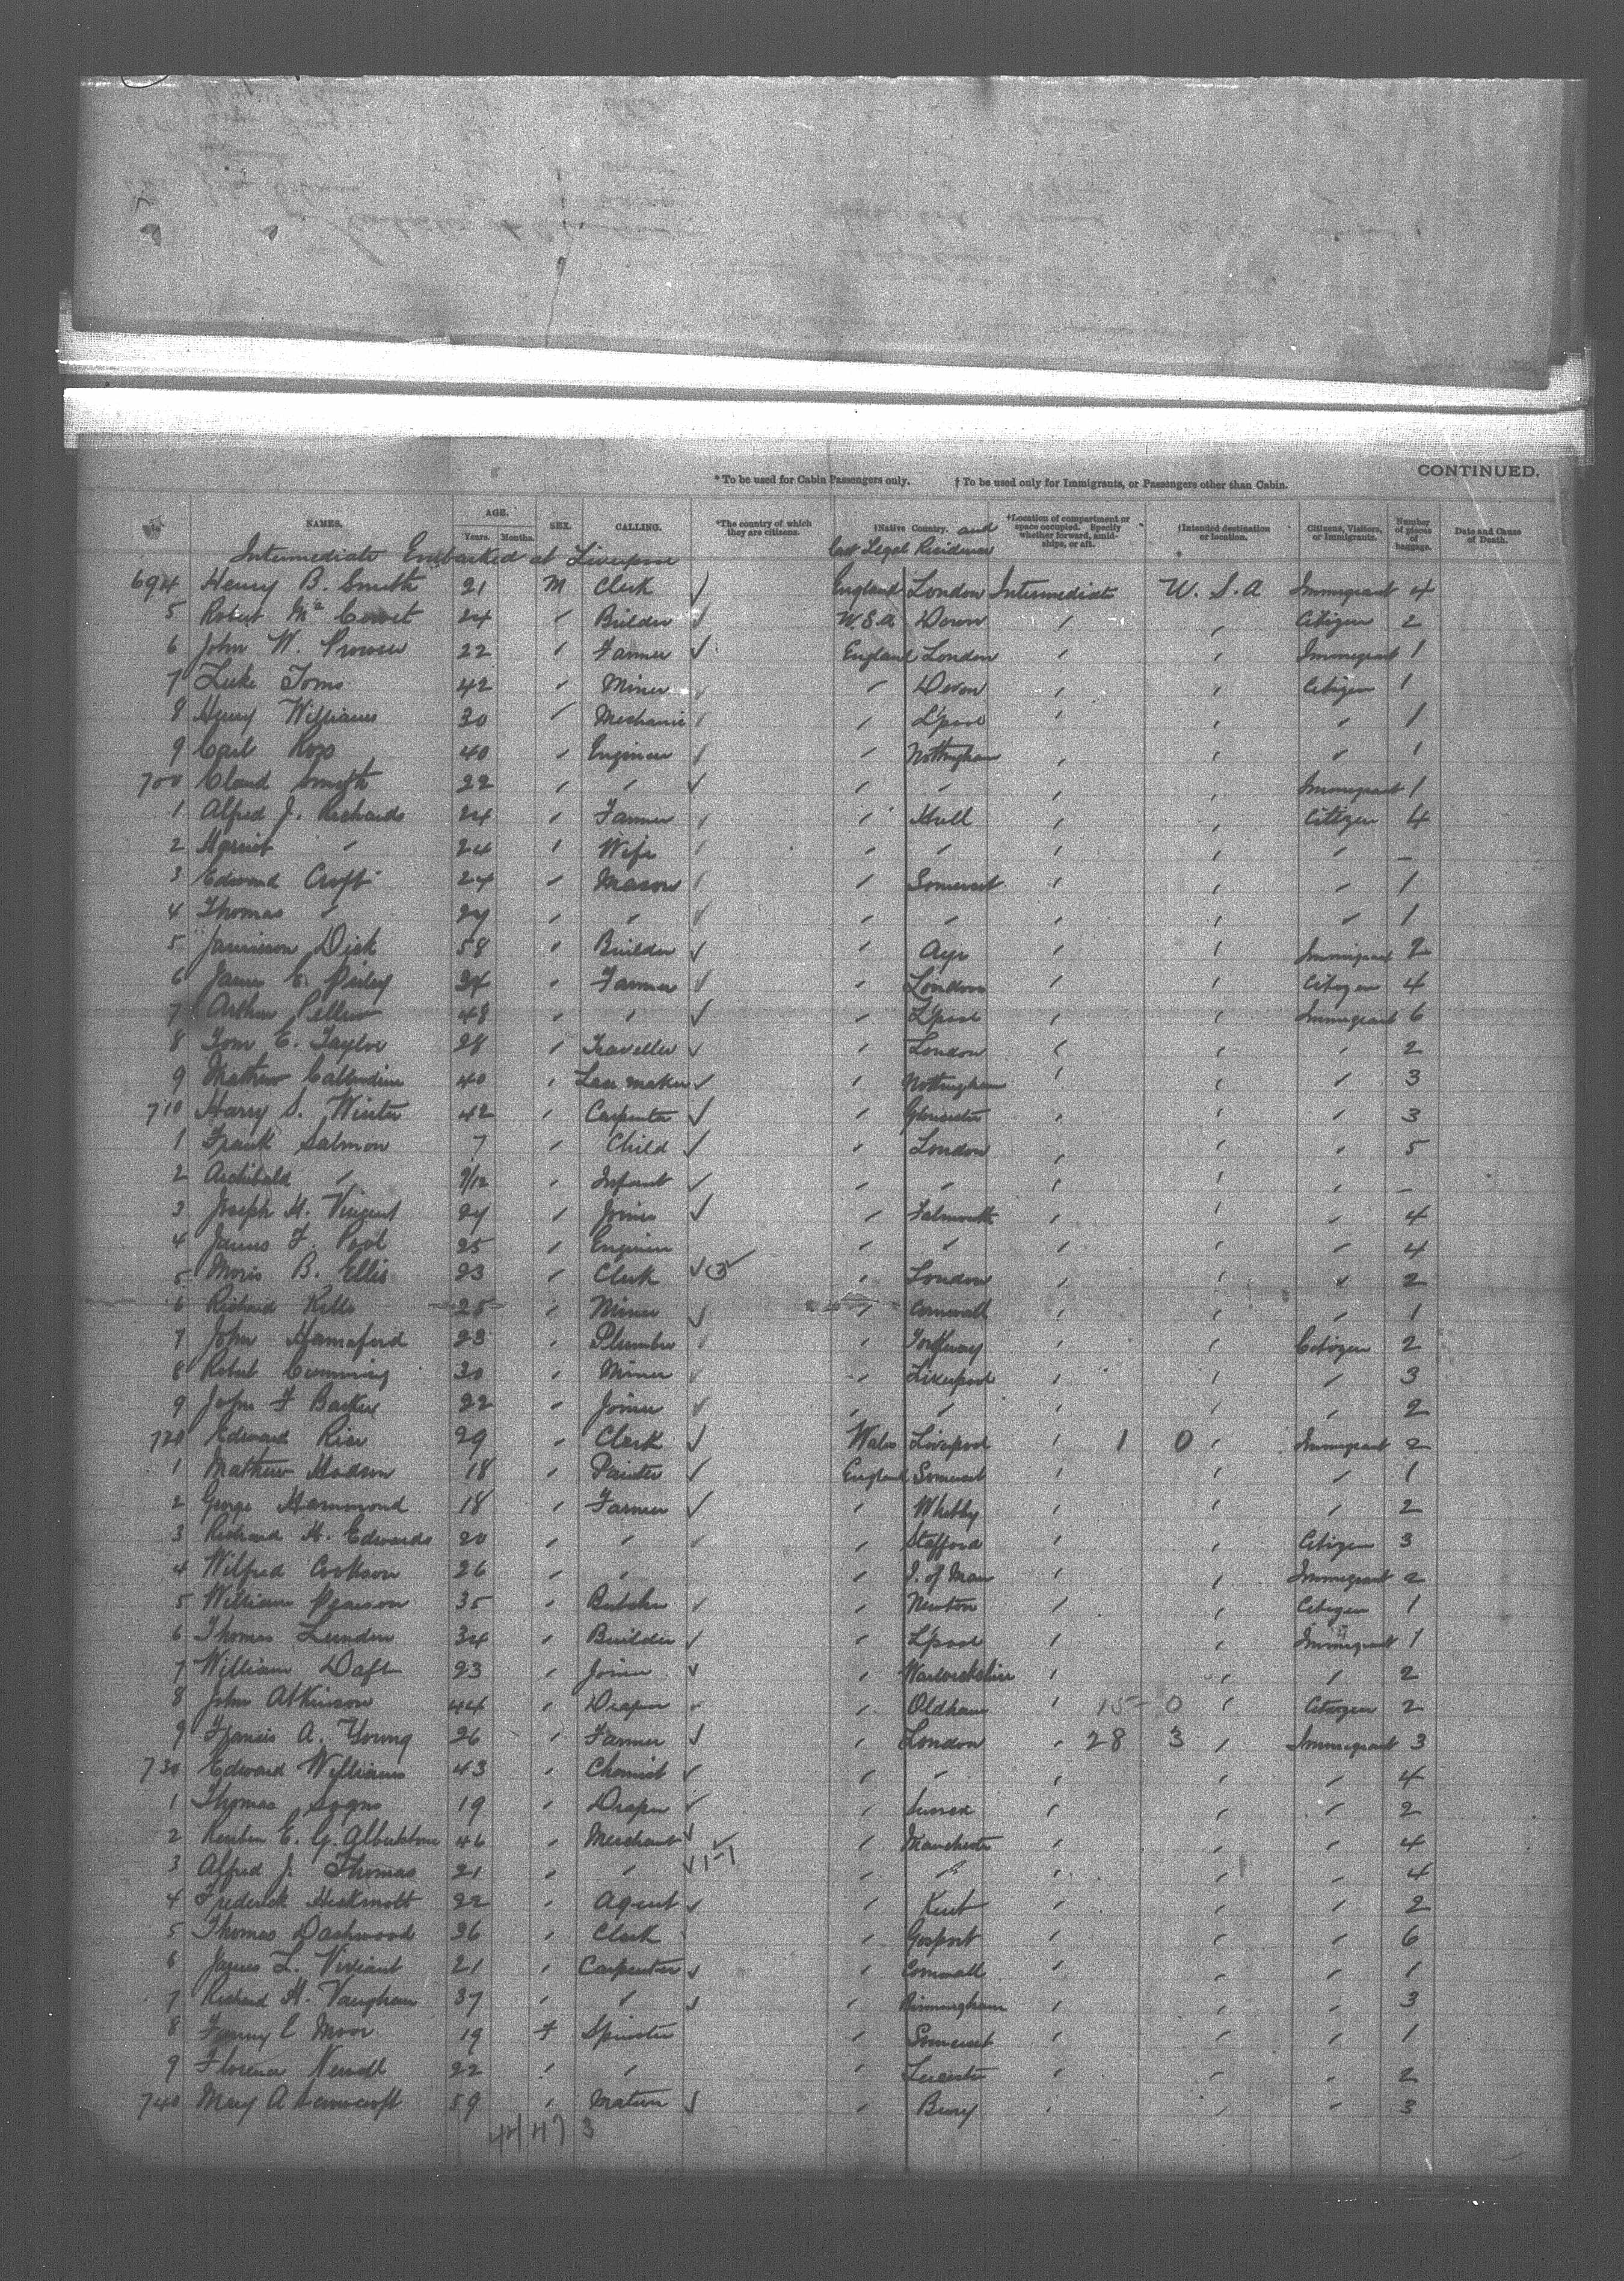 CONTINUED.
* To be used for Cabin Passengers only. † To be used only for Immigrants, or Passengers other than Cabin.
NAMES. AGE. Years. Months. SEX. CALLING. *The country of which they are citizens. †Native Country. and Last Legal Residence †Location of compartment or space occupied. Specify whether forward, amidships, or aft. †Intended destination or location. Citizens, Visitors, or Immigrants. Number of pieces of baggage. Date and Cause of Death.
Intermediate Embarked at Liverpool
694 Henry B. Smith 21 M Clerk ✓ England London Intermediate U.S.A Immigrant 4
5 Robert Mc 24 " Builder ✓ U.S.A. Down " " Citizen 2
6 John W. 22 " Farmer ✓ England London " " Immigrant 1
7 Luke Toms 42 " Miner ✓ " Devon " " Citizen 1
8 Henry Williams 30 " Mechanic " L'pool " " " 1
9 Carl Ross 40 " Engineer " Nottingham " " " 1
700 Claud Smyth 22 " " ✓ " " " " Immigrant 1
1 Alfred J. Richards 24 " Farmer " Hull " " Citizen 4
2 Harriet " 24 " Wife " " " " " –
3 Edward Croft 24 " Mason " Somerset " " " 1
4 Thomas " 27 " " ✓ " " " " " 1
5 Jamieson Dick 58 " Builder ✓ " Ayr " " Immigrant 2
6 James E. 34 " Farmer ✓ " London " " Citizen 4
7 Arthur Pellew 48 " " ✓ " L'pool " " Immigrant 6
8 Tom E. Taylor 28 " Traveller ✓ " London " " " 2
9 Mathew Calladine 40 " Lace maker ✓ " Nottingham " " 3
710 Harry S. Winter 42 " Carpenter ✓ " Gloucester " " " 3
1 Frank Salmon 7 " Child ✓ " London " " " 5
2 Archibald " 9/12 " Infant ✓ " " " " " –
3 Joseph H. Vincent 27 " Joiner ✓ " Falmouth " " " 4
4 James F. Pool 25 " Engineer " " " " " 4
5 Moris B. Ellis 23 " Clerk ✓ " London " " " 2
6 Richard 25 " Miner ✓ " Cornwall " " " 1
7 John Hannaford 23 " Plumber " Torquay " " Citizen 2
8 Robert Cumming 30 " Miner ✓ " Liverpool " " " 3
9 John F Barker 22 " Joiner ✓ " " " " " 2
720 Edward Rice 29 " Clerk ✓ Wales Liverpool " 1 0 " Immigrant 2
1 Mathew Hodson 18 " Painter ✓ England Somerset " " " 1
2 George Hammond 18 " Farmer ✓ " Whitby " " " 2
3 Richard H. Edwards 20 " " " Stafford " " Citizen 3
4 Wilfred Cookson 26 " " " I. of Man " " Immigrant 2
5 William Pearson 35 " Butcher ✓ " Newton " " Citizen 1
6 Thomas 34 " Builder ✓ " L'pool " " Immigrant 1
7 William Daft 23 " Joiner ✓ " Warwickshire " " " 2
8 John Atkinson 44 " Draper " Oldham " 15 0 " Citizen 2
9 Francis A. Young 26 " Farmer ✓ " London " 28 3 " Immigrant 3
730 Edward Williams 43 " Chemist ✓ " " " " " 4
1 Thomas 19 " Draper ✓ " Sussex " " " 2
2 Reuben E. G. 46 " Merchant ✓ " Manchester " " " 4
3 Alfred J. Thomas 21 " " ✓ " " " " " 4
4 Frederick Hickmott 22 " Agent ✓ " Kent " " " 2
5 Thomas Dashwood 36 " Clerk " Gosport " " " 6
6 James L. 21 " Carpenter ✓ " Cornwall " " " 1
7 Richard H. Vaughan 37 " " ✓ " Birmingham " " " 3
8 Fanny E Moor 19 F Spinster " Somerset " " " 1
9 Florence Newell 22 " " " Leicester " " " 2
740 Mary A 59 " Matron ✓ " Bury " " " 3
44 47 3